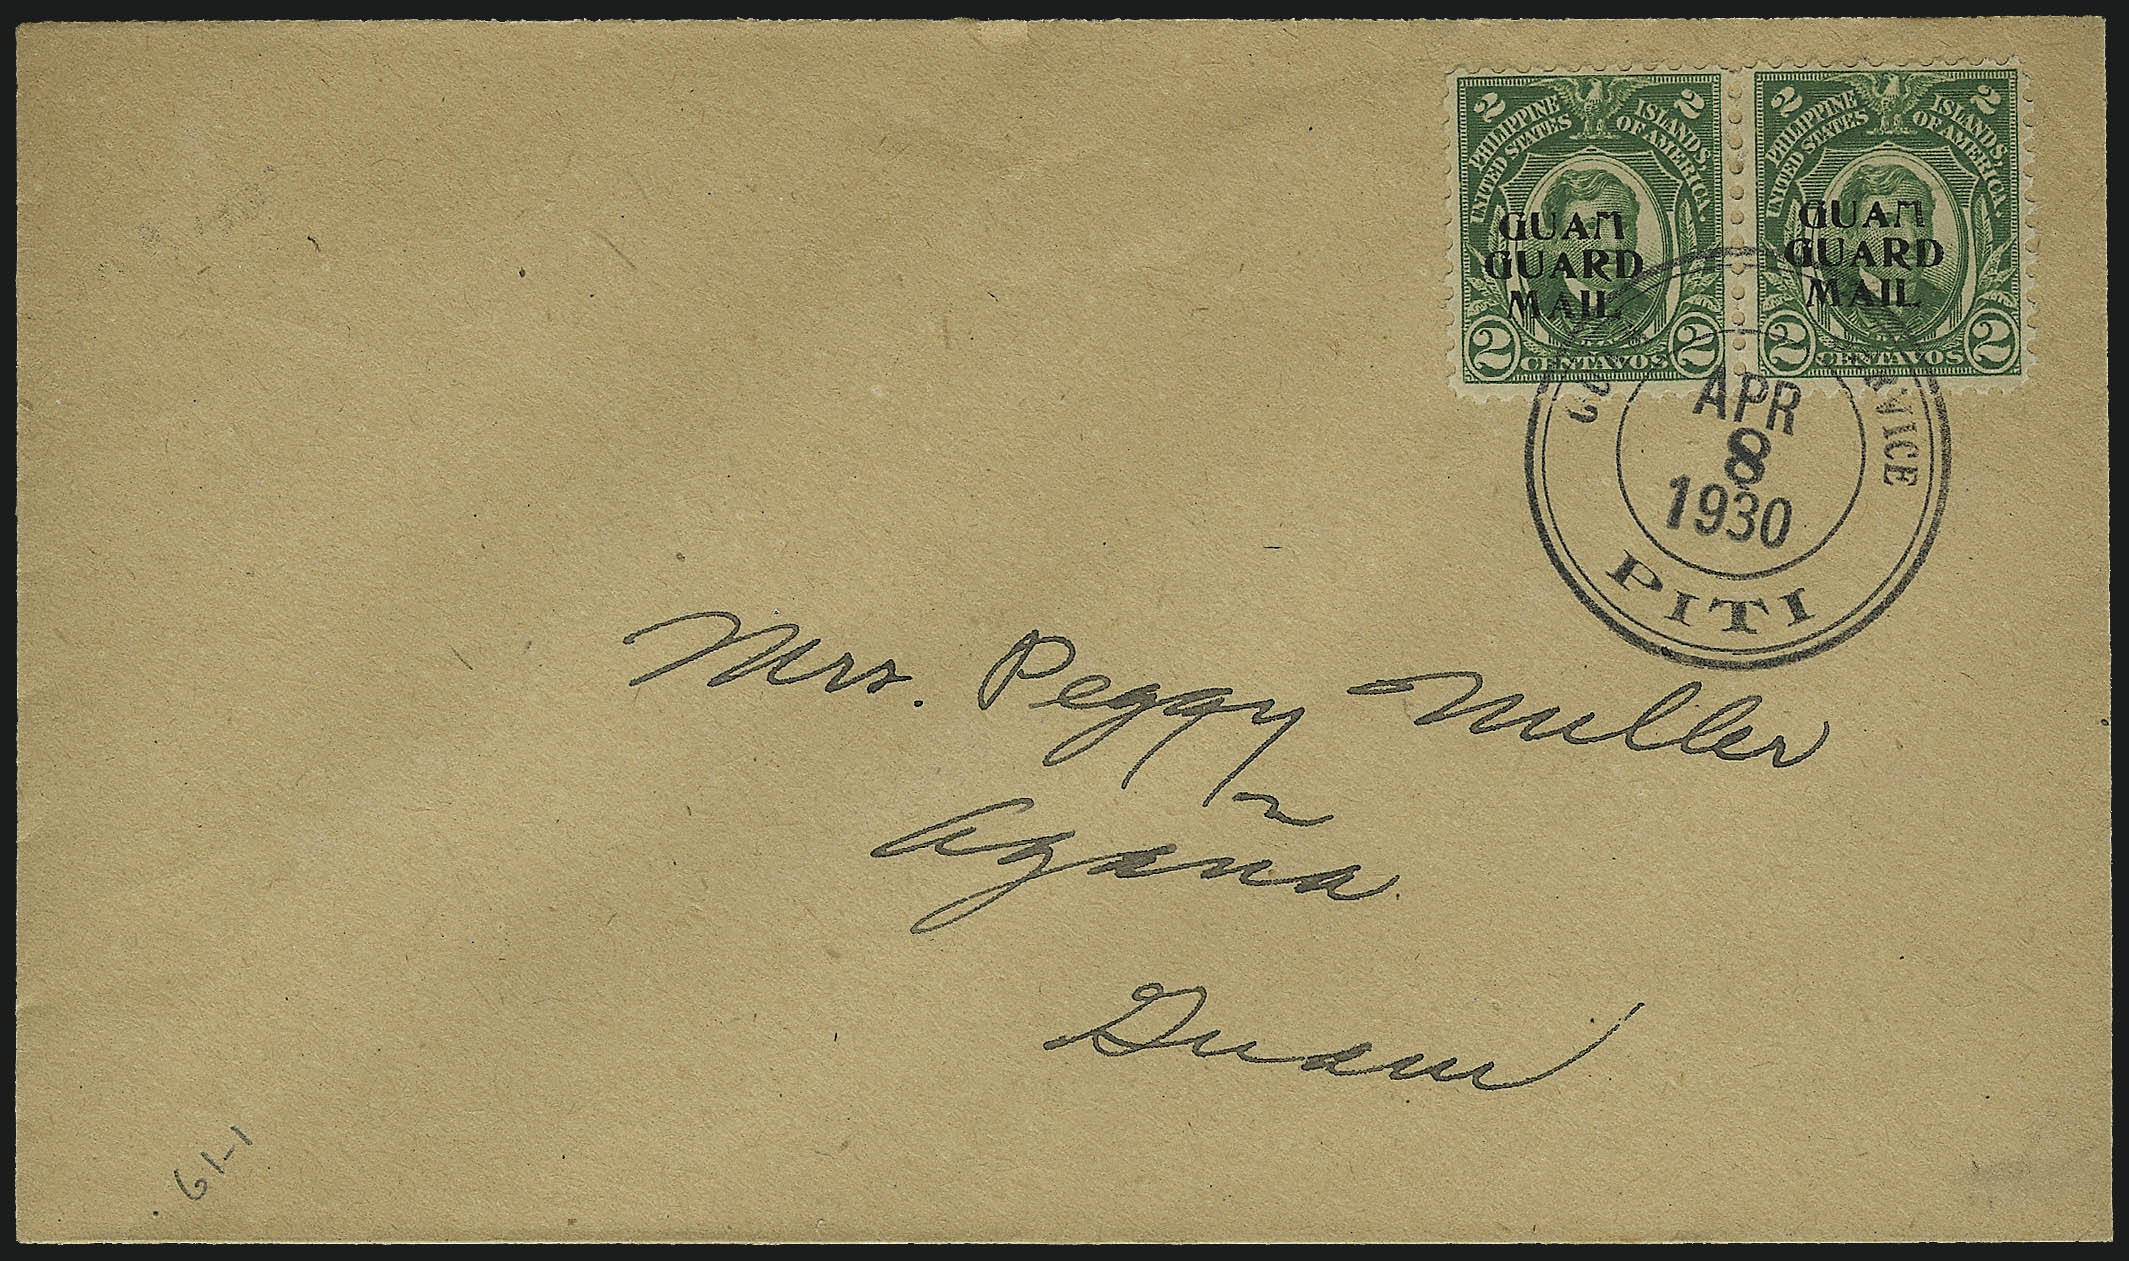 2 PHILIPPINE ISLANDS, 2
UNITED STATES OF AMERICA.
GUAM
GUARD
MAIL
2 CENTAVOS 2
2 PHILIPPINE ISLANDS, 2
UNITED STATES OF AMERICA.
GUAM
GUARD
MAIL
2 CENTAVOS 2
APR
8
1930
PITI
Mrs. Peggy Miller
Agaña
Guam
G1-1